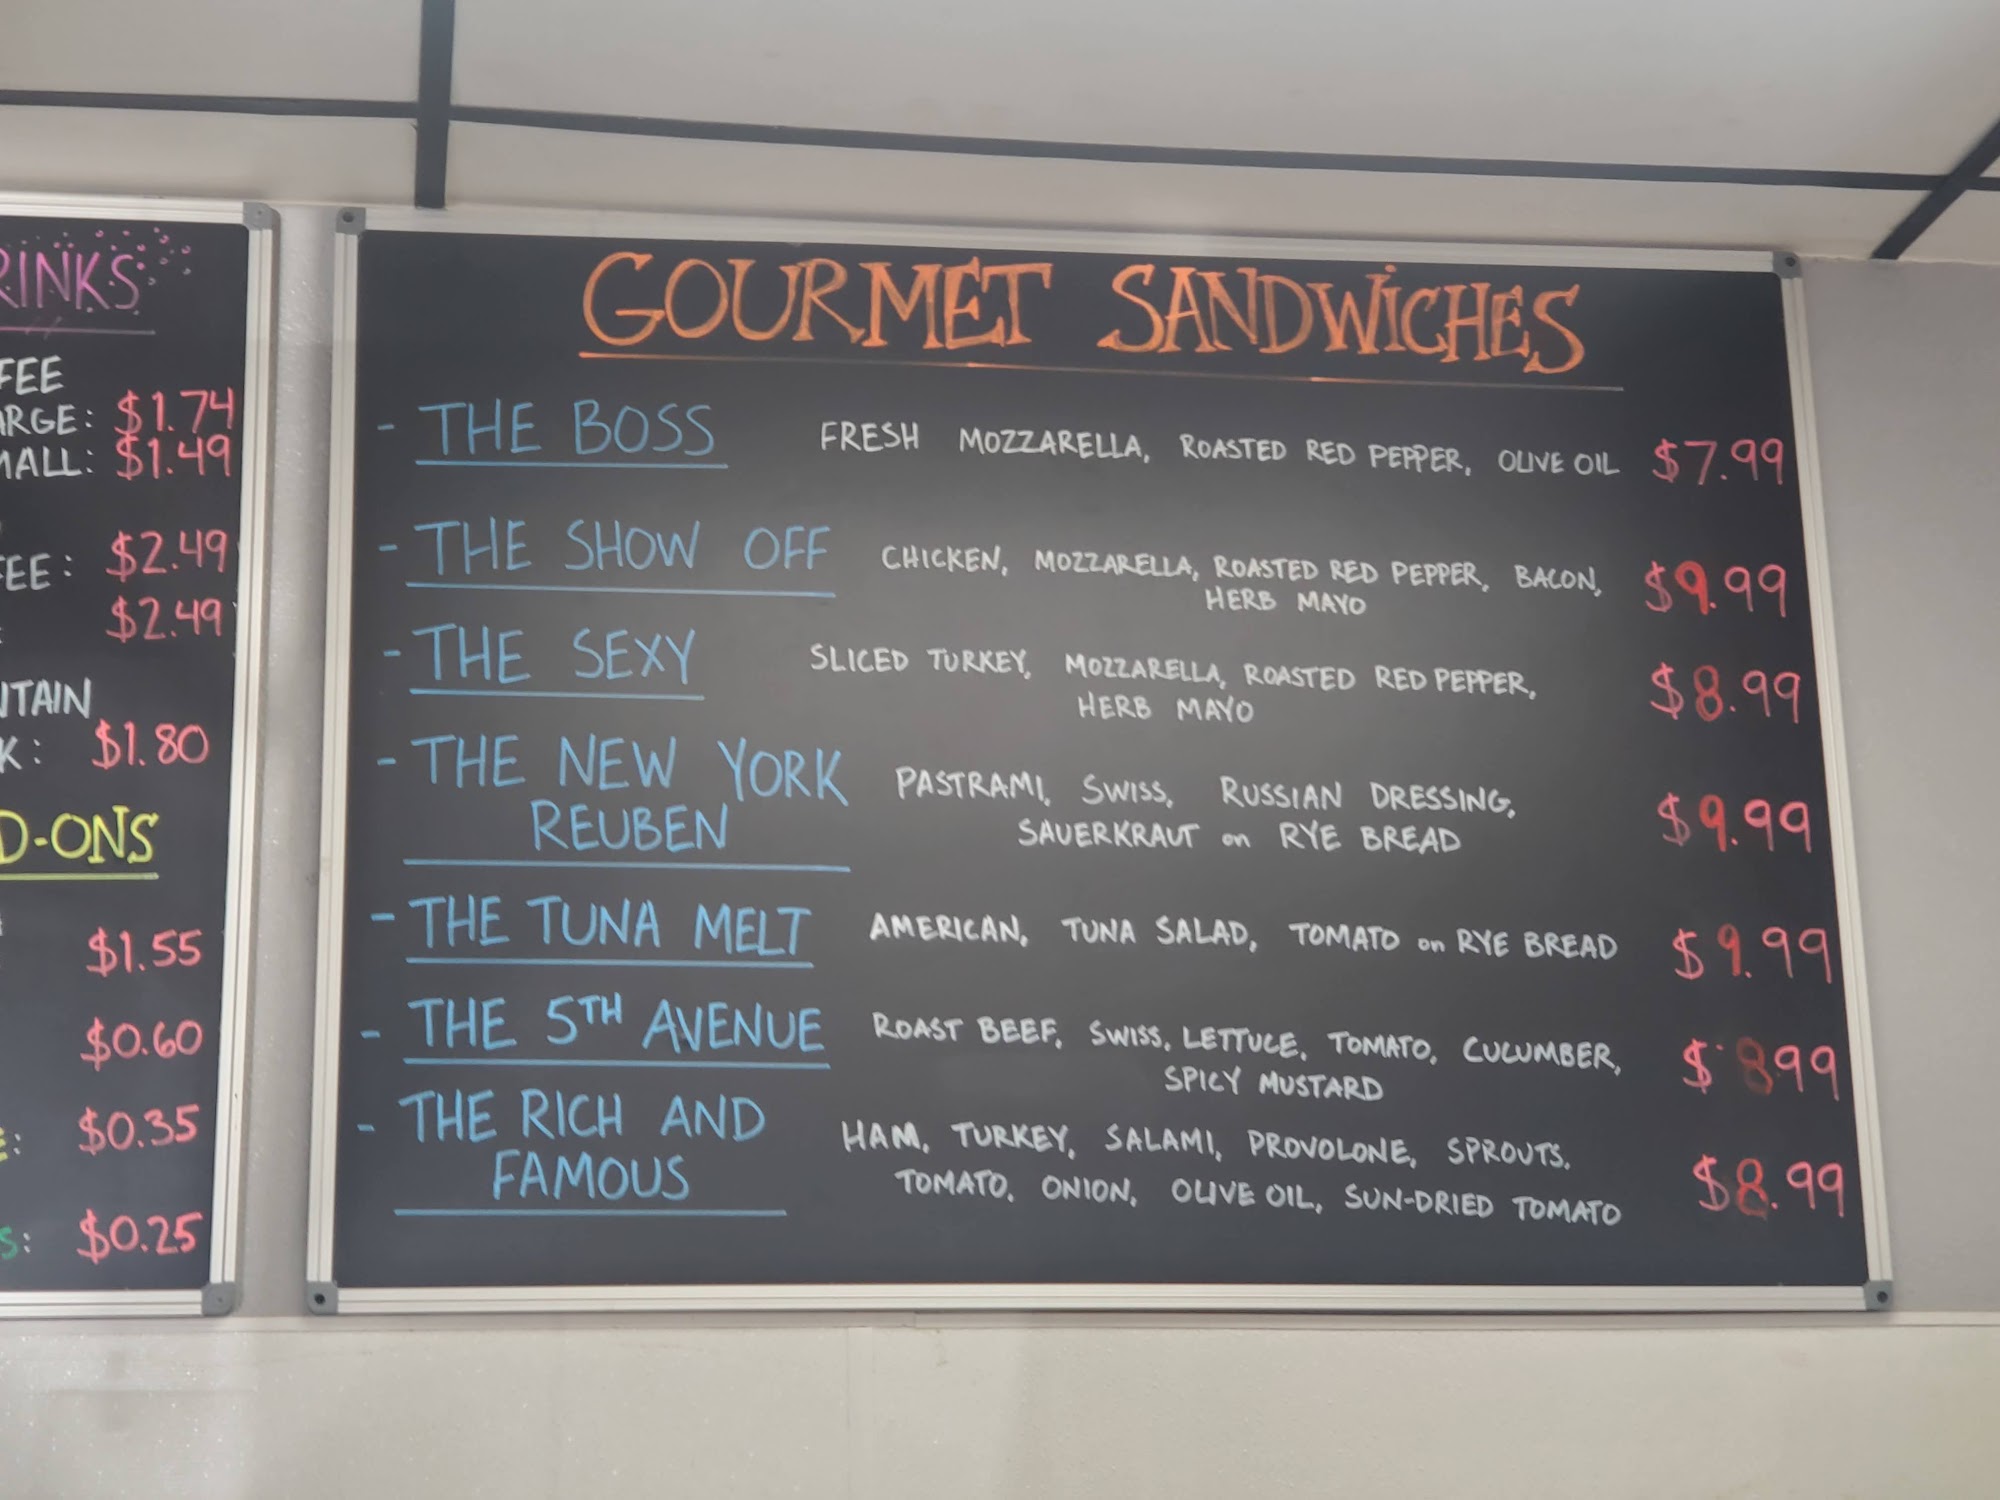 RINKS
FEE
ARGE: $1.74
MALL: $1.49
FEE: $2.49
$2.49
NTAIN
K: $1.80
D-ONS
$1.55
$0.60
E: $0.35
S: $0.25
GOURMET SANDWICHES
- THE BOSS FRESH MOZZARELLA, ROASTED RED PEPPER, OLIVE OIL $7.99
- THE SHOW OFF CHICKEN, MOZZARELLA, ROASTED RED PEPPER, BACON, $9.99
HERB MAYO
- THE SEXY SLICED TURKEY, MOZZARELLA, ROASTED RED PEPPER, $8.99
HERB MAYO
- THE NEW YORK PASTRAMI, SWISS, RUSSIAN DRESSING, $9.99
REUBEN SAUERKRAUT on RYE BREAD
- THE TUNA MELT AMERICAN, TUNA SALAD, TOMATO on RYE BREAD $9.99
- THE 5TH AVENUE ROAST BEEF, SWISS, LETTUCE, TOMATO, CUCUMBER, $8.99
SPICY MUSTARD
- THE RICH AND HAM, TURKEY, SALAMI, PROVOLONE, SPROUTS, $8.99
FAMOUS TOMATO, ONION, OLIVE OIL, SUN-DRIED TOMATO